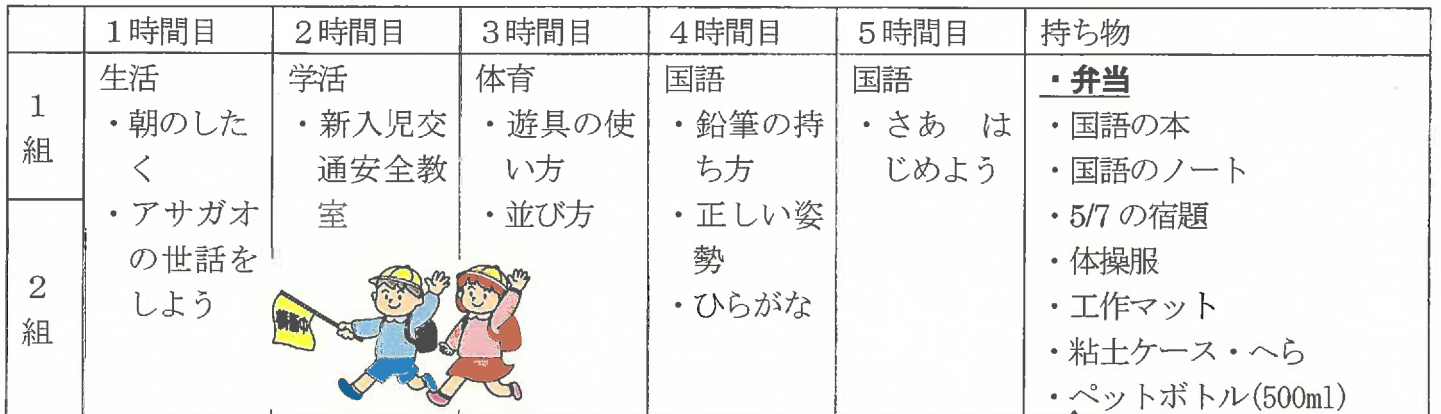 １時間目 ２時間目 ３時間目 ４時間目 ５時間目 持ち物
１組
２組
生活
・朝のした
く
・アサガオ
の世話を
しよう
学活
・新入児交
通安全教
室
体育
・遊具の使
い方
・並び方
国語
・鉛筆の持
ち方
・正しい姿
勢
・ひらがな
国語
・さあ　は
じめよう
・弁当
・国語の本
・国語のノート
・5/7 の宿題
・体操服
・工作マット
・粘土ケース・へら
・ペットボトル(500ml)